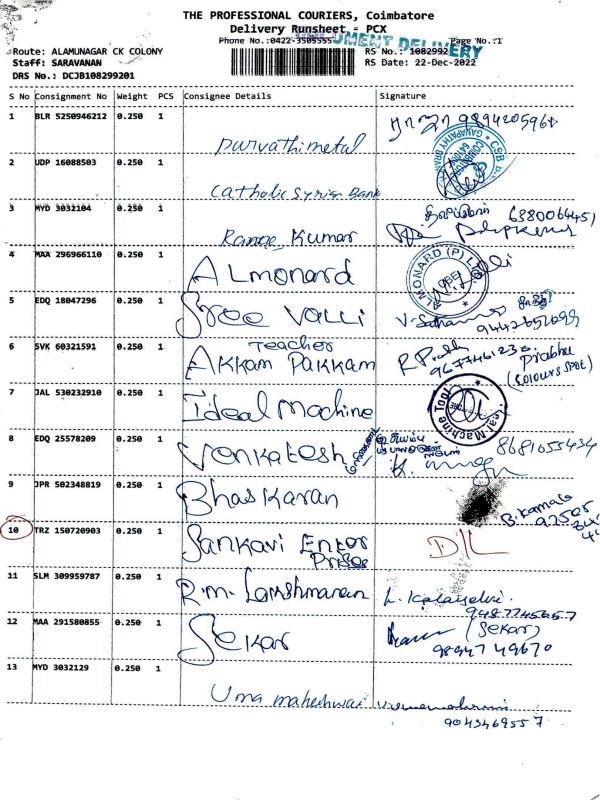 THE PROFESSIONAL COURIERS, Coimbatore
Delivery Runsheet - PCX
Phone No.:0422-3505555
DOCUMENT DELIVERY
Page No.:1
Route: ALAMUNAGAR CK COLONY
RS No.: 1082992
Staff: SARAVANAN
RS Date: 22-Dec-2022
DRS No.: DCJB108299201
S No Consignment No Weight PCS Consignee Details Signature
1 BLR 5250946212 0.250 1
Purvathi metal
2 UDP 16088503 0.250 1
Catholic Syrian Bank
3 MYD 3032104 0.250 1
Kumar
6380064451
4 MAA 296966110 0.250 1
ALmonard
ALMONARD (P) LTD.
5 EDQ 18047296 0.250 1
Sree Valli
6 SVK 60321591 0.250 1
Teacher
AKKam PaKKam
Prabhu
(COLOURS SPOT)
7 JAL 530232910 0.250 1
Ideal Machine
8 EDQ 25578209 0.250 1
Venkatesh
8681055434
9 JPR 502348819 0.250 1
BhasKaran
B. Kamala
10 TRZ 150720903 0.250 1
Sankavi Enter
Prises
D/L
11 SLM 309959787 0.250 1
R.m. Lakshmanan
L. Kalaiselvi
12 MAA 291580855 0.250 1
Sekar
(Sekar)
9894749670
13 MYD 3032129 0.250 1
Uma maheshwari
9043469557